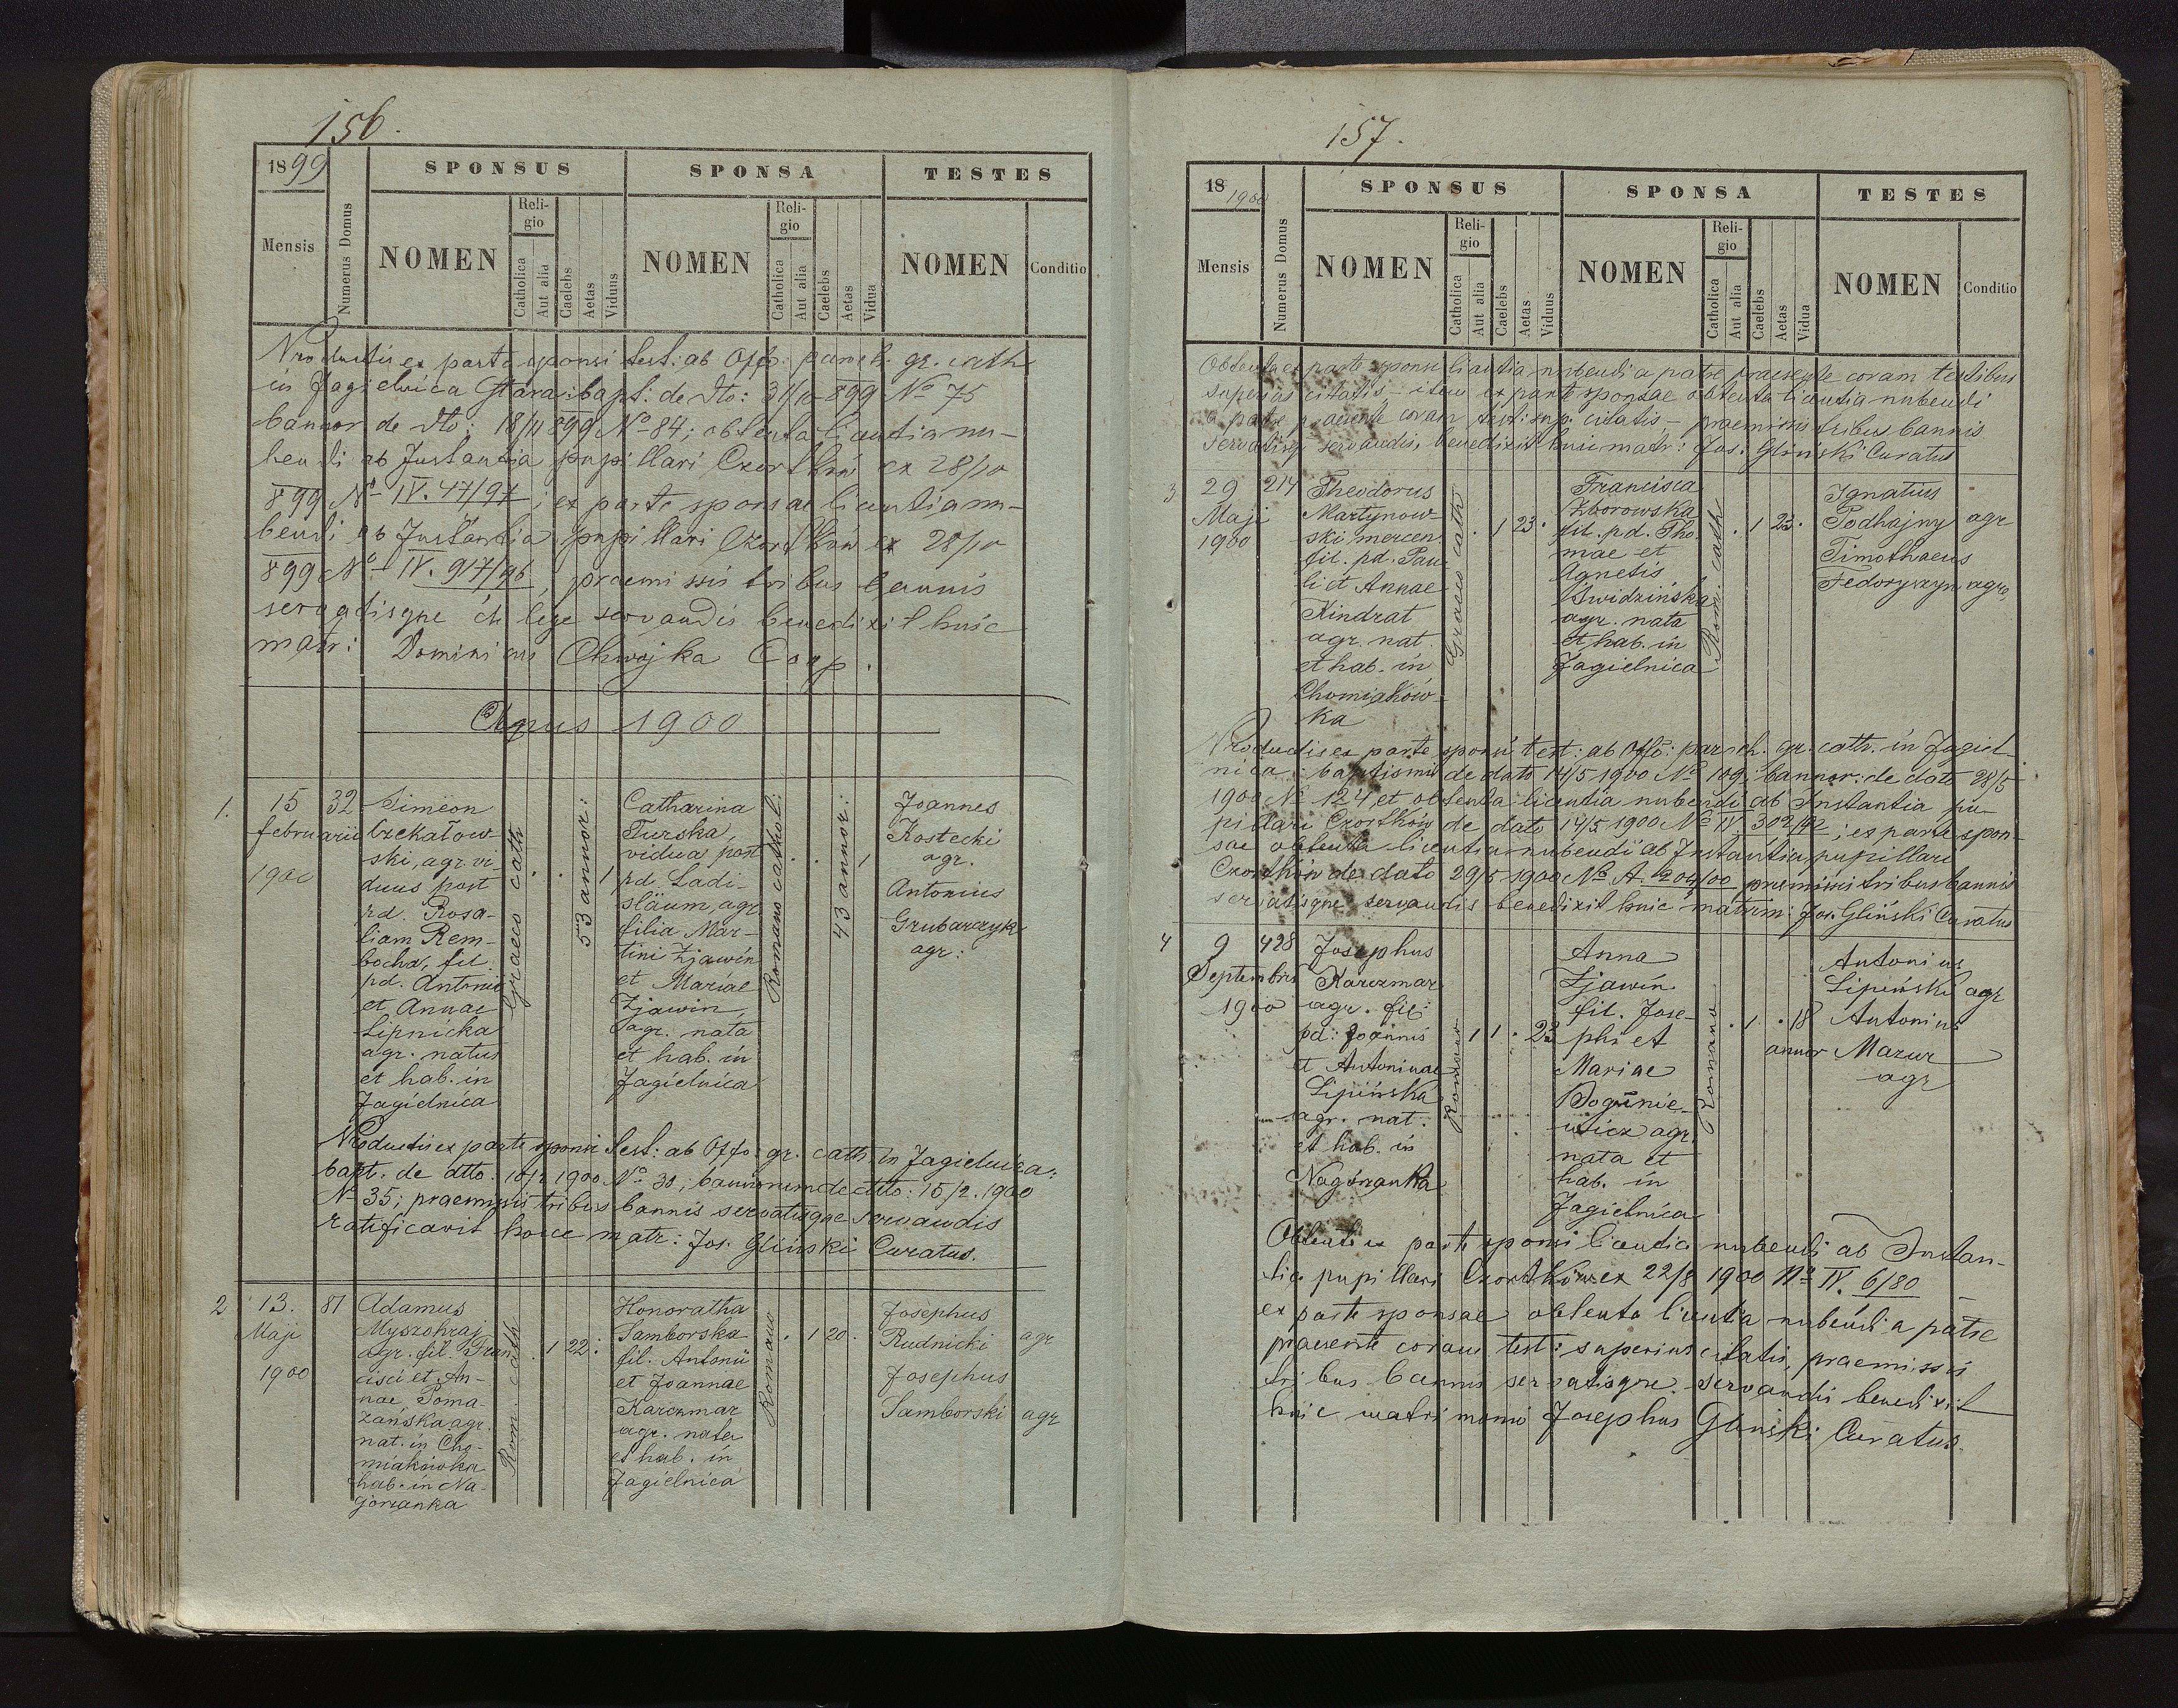 156.
1899
SPONSUS
SPONSA
TESTES
Mensis
Numerus Domus
NOMEN
Religio
Catholica
Aut alia
Caelebs
Aetas
Viduus
NOMEN
Religio
Catholica
Aut alia
Caelebs
Aetas
Vidua
NOMEN
Conditio
Productis ex parte sponsi test: ab Offo: paroch. gr. cath
in Jagielnica Stara: bapt: de dto: 31/10 899 No 75
bannor de dto: 18/11 899 No 84; obtenta licentia nu-
bendi ab Instantia pupillari Czortków ex 28/10
899 No IV. 47/97; ex parte sponsae licentia nu-
bendi ab Instantia pupillari Czortków ex 28/10
899 No IV. 917/96, praemissis tribus bannis
servatisque de lege servandis benedixit huic
matr: Dominicus Chwojka Coop.
Annus 1900
1.
15
februarii
1900
32
Simeon
Czekałow-
ski, agr. vi-
duus post
pd. Rosa-
liam Rem-
bocha, fil.
pd. Antonii
et Annae
Lipnicka
agr. natus
et hab. in
Jagielnica
Graeco cath
53 annor:
1
Catharina
Turska,
vidua post
pd. Ladi-
slaum, agr.
filia Mar-
tini Zjawin
et Mariae
Zjawin,
agr. nata
et hab. in
Jagielnica
Romano cathol:
43 annor:
1
Joannes
Kostecki
agr.
Antonius
Grubarczyk
agr:
Productis ex parte sponsi test: ab Offo: gr. cath. in Jagielnica:
bapt. de dtto: 15/2 1900 No 30; bannorum de dtto: 15/2. 1900
No 35; praemissis tribus bannis servatisque servandis
ratificavit huice matr: Jos. Gliński Curatus.
2
13.
Maji
1900
81
Adamus
Myszohraj
agr. fil. Fran-
cisci et An-
nae Poma-
zańska agr.
nat. in Cho-
miakówka
hab. in Na-
gorzanka
Rom. cath
1 22:
Honoratha
Samborska
fil. Antonii
et Joannae
Karczmar
agr. nata
et hab. in
Jagielnica
Romano
1 20.
Josephus
Rudnicki agr
Josephus
Samborski agr
157.
18 1900
SPONSUS
SPONSA
TESTES
Mensis
Numerus Domus
NOMEN
Religio
Catholica
Aut alia
Caelebs
Aetas
Viduus
NOMEN
Religio
Catholica
Aut alia
Caelebs
Aetas
Vidua
NOMEN
Conditio
Obtenta ex parte sponsi licentia nubendi a patre praesente coram testibus
superius citatis – item ex parte sponsae obtenta licentia nubendi
a patre praesente coram test: sup: citatis, – praemissis tribus bannis
servatisq servandis, benedixit huic matr: Jos. Gliński Curatus
3
29
Maji
1900
214
Theodorus
Martynow-
ski mercen.
fil. pd. Pau-
li et Annae
Kindrat
agr. nat.
et hab. in
Chomiaków-
ka
Graeco cath
1 23.
Francisca
Zborowska
fil. pd. Tho-
mae et
Agnetis
Świdzińska
agr. nata
et hab. in
Jagielnica
Rom: cath
1 23.
Ignatius
Podhajny agr
Timothaeus
Fedoryszyn agr.
Productis ex parte sponsi test: ab Offo: paroch. gr. cath. in Jagiel-
nica: baptismi de dato 14/5 1900 No 109; bannor: de dato 28/5
1900 No 124, et obtenta licentia nubendi ab Instantia pu-
pillari Czortków de dato 14/5 1900 No IV. 302/92; ex parte spon-
sae obtenta licentia nubendi ab Instantia pupillari
Czortków de dato 29/5 1900 No A. 204/00 praemissis tribus bannis
servatisque servandis benedixit huic matrim: Jos. Gliński Curatus
4
9
Septembris
1900
428
Josephus
Karczmar
agr. fil:
pd: Joannis
et Antoninae
Lipińska
agr. nat.
et hab. in
Nagórzanka
Romano
1 1 . 23
Anna
Zjawin
fil. Jose-
phi et
Mariae
Bogunie-
wicz agr.
nata et
hab. in
Jagielnica
Romano
. 1 . 18
annor
Antonius
Lipiński agr
Antonius
Mazur
agr
Obtenta ex parte sponsi licentia nubendi ab Instan-
tia pupillari Czortków ex 22/8 1900 No IV. 6/80
ex parte sponsae obtenta licentia nubendi a patre
praesente coram test: superius citatis, praemissis
tribus bannis servatisque servandis benedixit
huic matrimonio Josephus Gliński Curatus